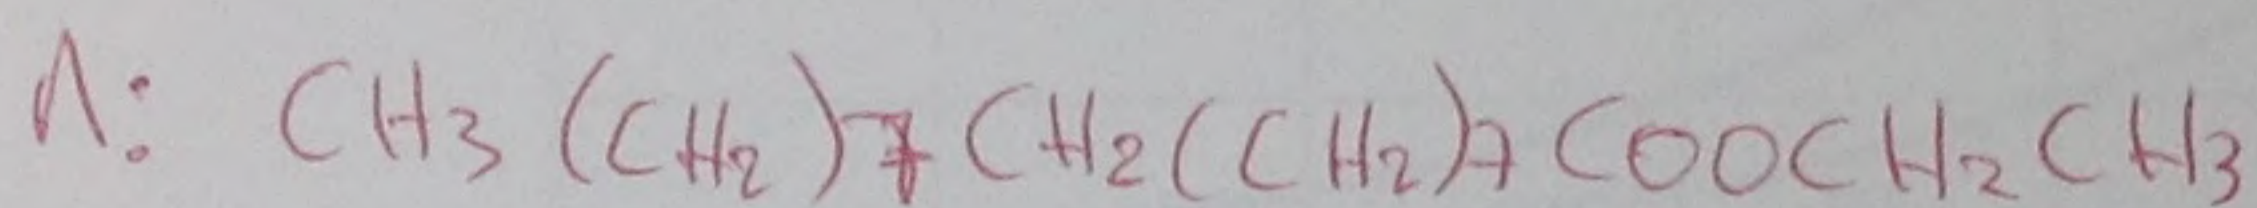 A: CH3 (CH2)7 CH2(CH2)7 COOCH2CH3